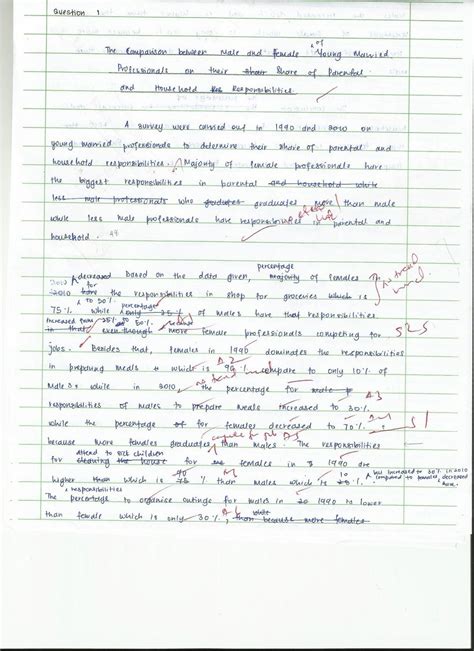 Question 1
The Comparison between Male and Female of Young Married
Professionals on their share Share of Parental
and Household Res Responsibilities
A survey were carried out in 1990 and 2010 on
young married professionals to determine their share of parental and
household responsibilities. Majority of female professionals have
the biggest responsibilities in parental and household while
less male professionals who graduates graduates more than male
while less male professionals have responsibilities in parental and
household.
decreased based on the data given, percentage majority of females
2010 for have the responsibilities in shop for groceries which is
75% to 50% while percentage only 25% of males have that responsibilities
increased from 25% to 50% because
in that, even though more female professionals competing for
jobs. Besides that, females in 1990 dominates the responsibilities
in preparing meals which is 90% compare to only 10% of
males while in 2010, the percentage for male
responsibilities of males to prepare meals increased to 30%
while the percentage of for females decreased to 70%
because more females graduates than males. The responsibilities
attend to sick children
for cleaning the house for females in 1990 are
higher than which is 90 % than males which is 10 %. but increased to 30% in 2010
compared to females, decreased
The percentage responsibilities to organise outings for males in 20 1990 is lower
than female which is only 30%, while than because more females